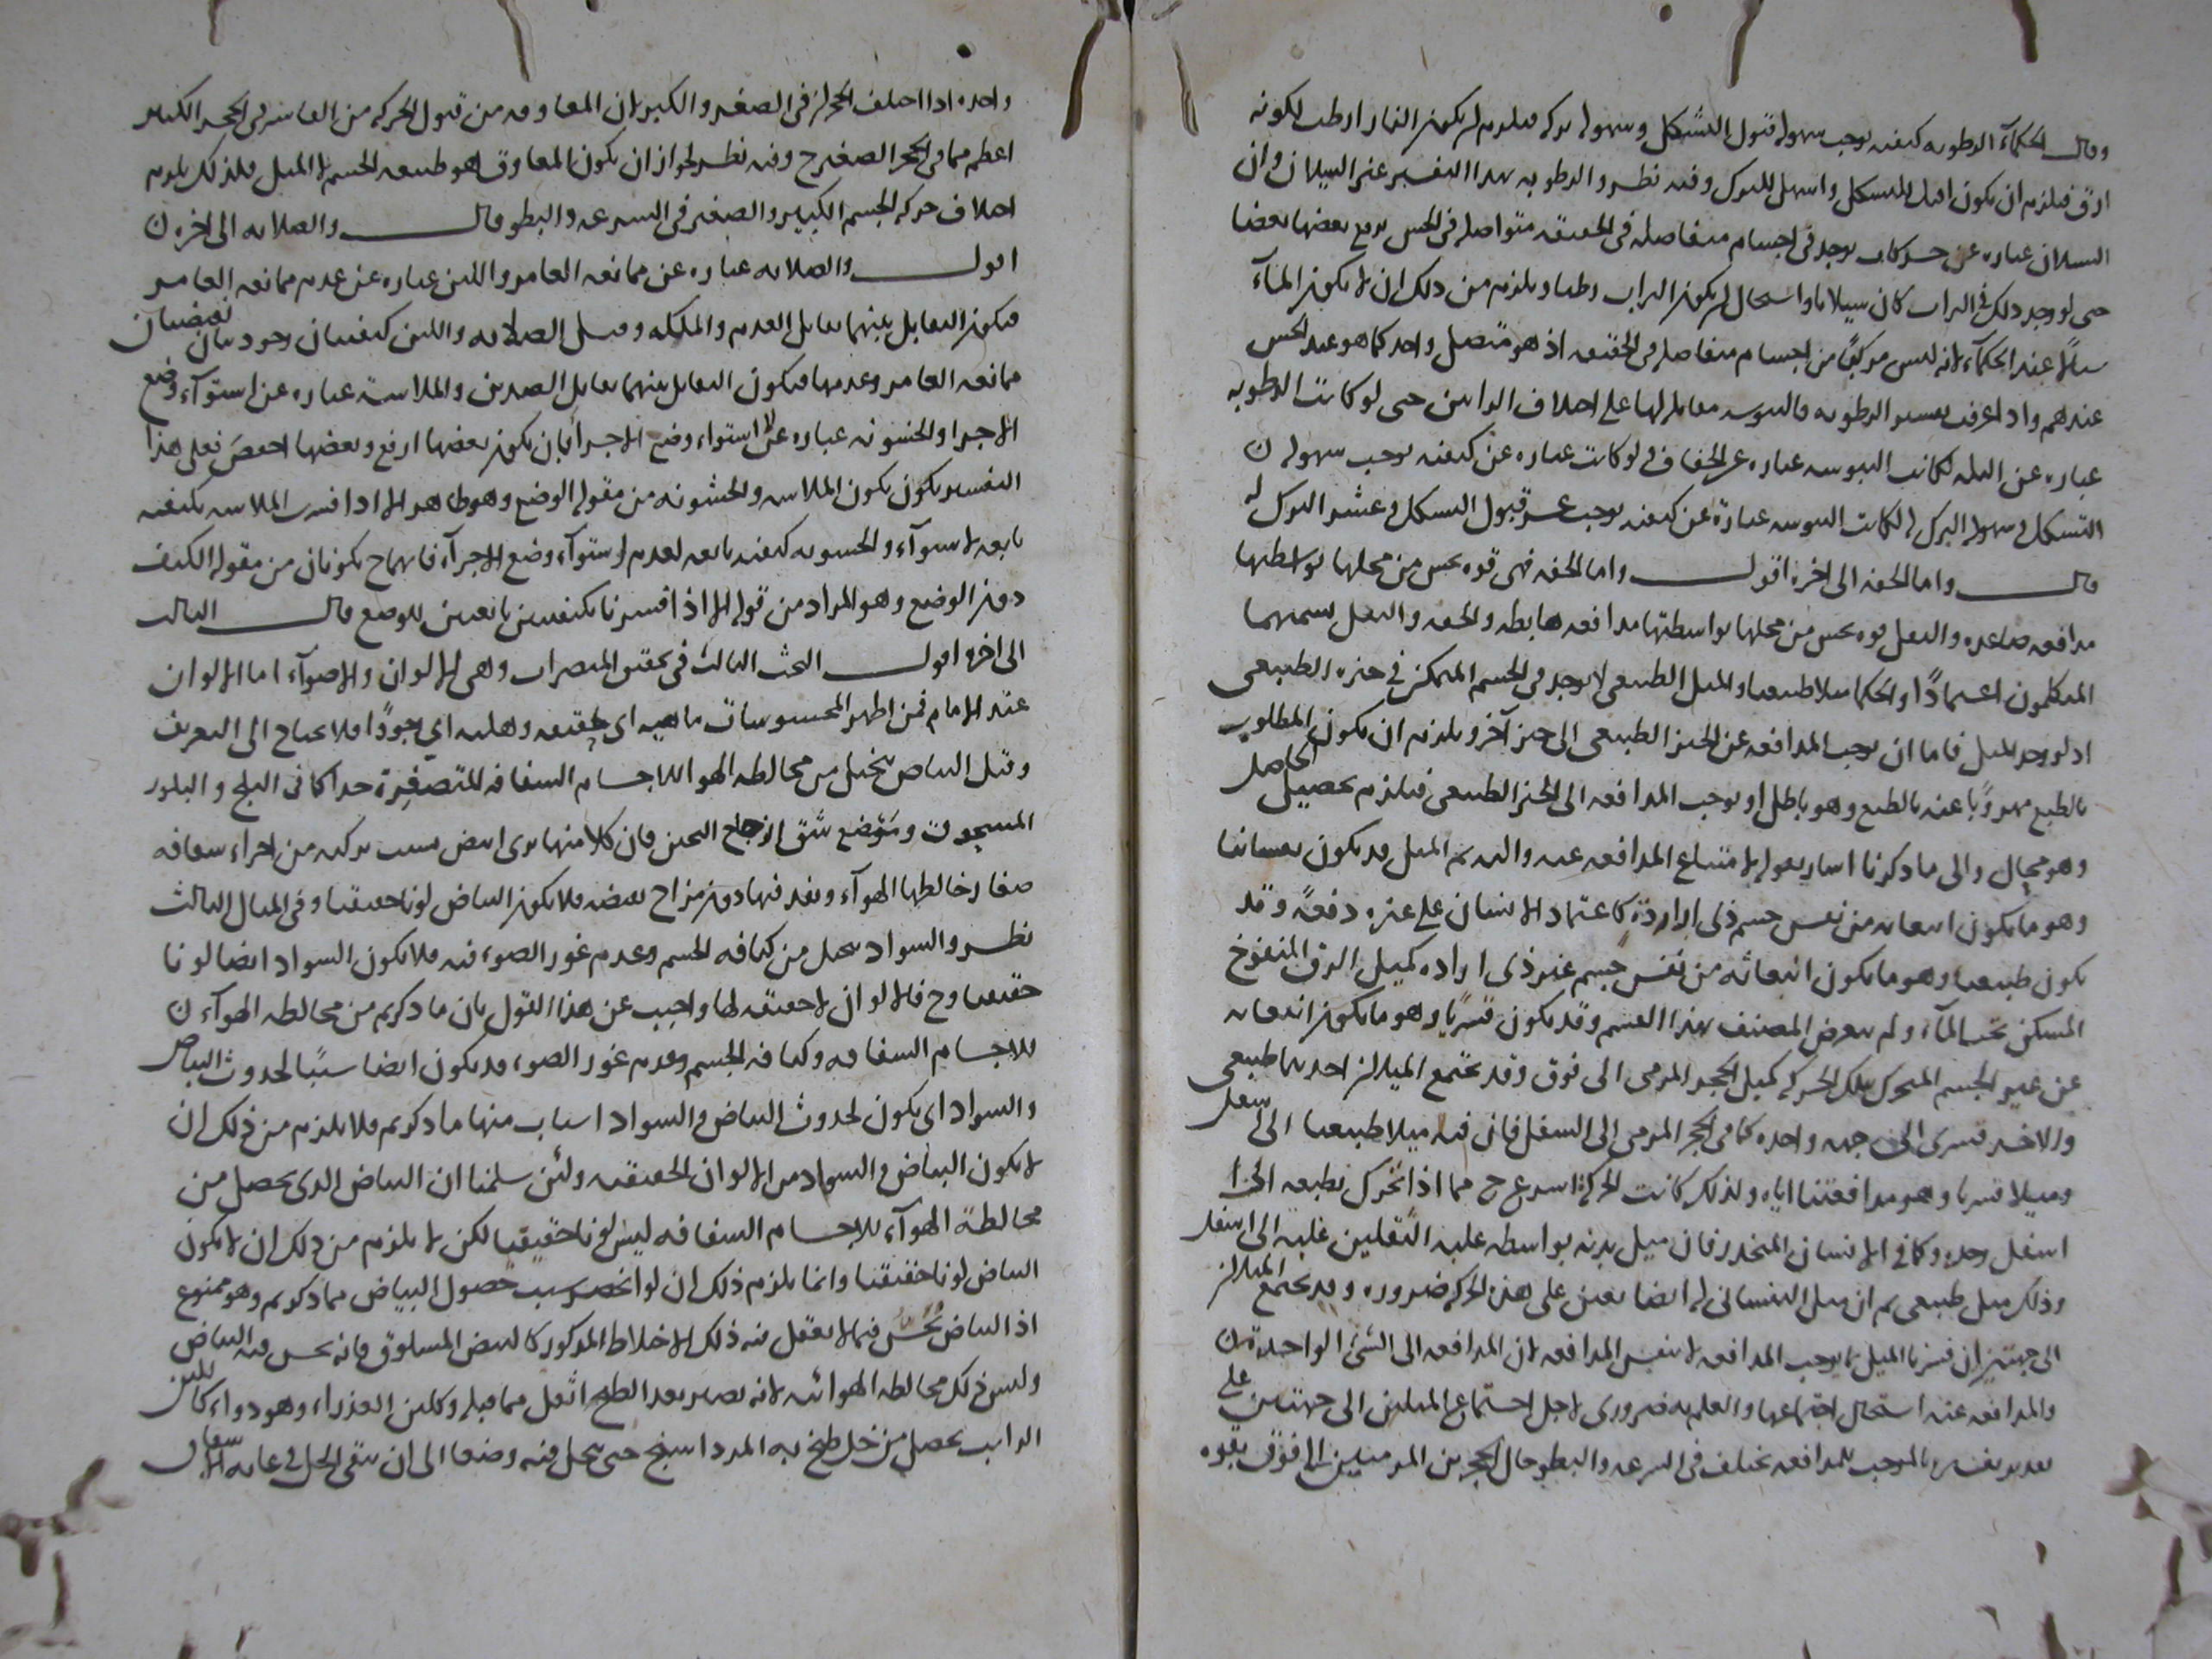 وقال الحكماء الرطوبه كيفيه توجب سهوله قبول التشكل وسهوله تركه فيلزم ان يكون النار ارطب لكونه
ارق فيلزم ان يكون اقبل للتشكل واسهل للترك وفيه نظر والرطوبه بهذا التفسير غير السيلان وان
السيلان عباره عن حركات توجد فى اجسام متفاصله فى الحقيقه متواصله فى الحس يدفع بعضها بعضا
حتى لو وجد ذلك فى التراب كان سيالا واستحال ان يكون التراب رطبا ويلزم من ذلك ان لا يكون الماء
سيالا عند الحكماء لانه ليس مركبا من اجسام متفاصله فى الحقيقه اذ هو متصل واحد كما هو عند الحس
عندهم واذا عرفت تفسير الرطوبه فاليبوسه مقابله لها على اختلاف الرايين حتى لو كانت الرطوبه
عباره عن البله لكانت اليبوسه عباره عن الجفاف ولو كانت عباره عن كيفيه توجب سهوله
التشكل وسهوله الترك لكانت اليبوسه عبارة عن كيفيه توجب عسر قبول التشكل وعسر الترك له
قال واما الخفه الى اخره اقول واما الخفه فهى قوه يحس من محلها بواسطتها
مدافعه صاعده والثقل قوه يحس من محلها بواسطتها مدافعه هابطه والخفه والثقل يسميهما
المتكلمون اعتمادًا والحكما ميلا طبيعيا والميل الطبيعى لا يوجد فى الجسم المتمكن فى حيزه الطبيعى
اذ لو وجد الميل فاما ان يوجب المدافعه عن الحيز الطبيعى الى حيز آخر ويلزم ان يكون المطلوب
بالطبع مهروبًا عنه بالطبع وهو باطل او يوجب المدافعه الى الحيز الطبيعى فيلزم تحصيل الحاصل
وهو محال والى ما ذكرنا اشار بقوله لامتناع المدافعه عنه واليه ثم الميل قد يكون نفسانيا
وهو ما يكون انبعاثه من نفس جسم ذى ارادة كاعتماد الانسان على غيره دفعةً وقد
يكون طبيعيا وهو ما يكون انبعاثه من نفس جسم غير ذى اراده كميل الزق المنفوخ
المسكن تحت الماء ولم يتعرض المصنف لهذا القسم وقد يكون قسريا وهو ما يكون انبعاثه
عن غير الجسم المتحرك بتلك الحركه كميل الحجر المرمى الى فوق وقد يجتمع الميلان احدهما طبيعى
والاخر قسرى الى جهه واحده كما فى الحجر المرمى الى السفل فان فيه ميلا طبيعيا الى السفل
وميلا قسريا وهو مدافعتنا اياه ولذلك كانت الحركة اسرع ح مما اذا تحرك بطبعه الى
اسفل وحده وكما فى الانسان المنحدر فان ميل بدنه بواسطه غلبه الثقلين غلبه الى اسفل
وذلك ميل طبيعى ثم ان ميل النفسانى له ايضا يعين على هذه الحركه ضروره وقد يجتمع الميلان
الى جهتين ان فسرنا الميل بما يوجب المدافعه لا بنفس المدافعه لان المدافعه الى الشئ الواحد
والمدافعه عنه استحال اجتماعها والعلم به ضرورى لاجل اجتماع الميلين الى جهتين على
تقدير تفسيره بالموجب للمدافعه يختلف فى السرعه والبطو حال الحجرين المرميين الى فوق بقوه
واحده اذا اختلف الحجران فى الصغر والكبر لان المعاوقه من قبول الحركه من القاسر فى الحجر الكبير
اعظم مما فى الحجر الصغير ح وفيه نظر لجواز ان يكون المعاوق هو طبيعه الجسم لا الميل فلذلك يلزم
اختلاف حركه الجسم الكبير والصغير فى السرعه والبطو قال والصلابه الى اخره
اقول والصلابه عباره عن ممانعه الغامز واللين عباره عن عدم ممانعه الغامز
فيكون التقابل بينهما تقابل العدم والملكه وقيل الصلابه واللين كيفيتان وجوديتان تقتضيان
ممانعه الغامز وعدمها فيكون التقابل بينهما تقابل الضدين والملاسه عباره عن استوآء وضع
الاجزا والخشونه عباره عن لا استواء وضع الاجزا بان يكون بعضها ارفع وبعضها اخفض فعلى هذا
التفسير يكون الملاسه والخشونه من مقوله الوضع وهو ظاهر الا اذا فسرت الملاسه بكيفيه
تابعه لاستوآء والخشونه كيفيه تابعه لعدم استوآء وضع الاجزآء فانهما ح يكونان من مقوله الكيف
دون الوضع وهو المراد من قوله الا اذا فسرتا بكيفيتين تابعتين للوضع قال الثالث
الى اخره اقول البحث الثالث فى تحقيق المبصرات وهى الالوان والاضوآء اما الالوان
عند الامام فمن اظهر المحسوسات ماهيه اى حقيقه وهليه اى وجودًا فلا يحتاج الى التعريف
وقيل البياض يتخيل من مخالطه الهوا للاجسام الشفافه المتصغرة جدا كما فى الثلج والبلور
المسحوق وموضع شق الزجاج الثخين فان كلا منها يرى ابيض بسبب تركبه من اجزاء شفافه
صغار خالطها الهوآء ونفد فيها دون مزاح بعضه فلا يكون البياض لونا حقيقيا وفى المثال الثالث
نظر والسواد يتخيل من كثافه الجسم وعدم غور الضوء فيه فلا يكون السواد ايضا لونا
حقيقيا وح فالالوان لا حقيقه لها واجيب عن هذا القول بان ما ذكرتم من مخالطه الهوآء
للاجسام الشفافه وكثافه الجسم وعدم غور الضوء قد يكون ايضا سببًا لحدوث البياض
والسواد اى يكون لحدوث البياض والسواد اسباب منها ما ذكرتم فلا يلزم من ذلك ان
لا يكون البياض والسواد من الالوان الحقيقيه ولئن سلمنا ان البياض الذى يحصل من
مخالطة الهوآء للاجسام الشفافه ليس لونا حقيقيا لكن لا يلزم من ذلك ان لا يكون
البياض لونا حقيقيا وانما يلزم ذلك ان لو انحصر سبب حصول البياض مما ذكرتم وهو ممنوع
اذ البياض يُحَسُّ فيما لا يعقل فيه ذلك الاختلاط المذكور كالبيض المسلوق فانه يحس فيه البياض
وليس ذلك لمخالطه الهوائيه لانه يصير بعد الطبخ اثقل مما قبله وكلبن العذراء وهو دواء كاللبن
الرايب يحصل من خل طبخ به المرداسنج حتى ينحل فيه وصفا الى ان يبقى الخل فى غايه